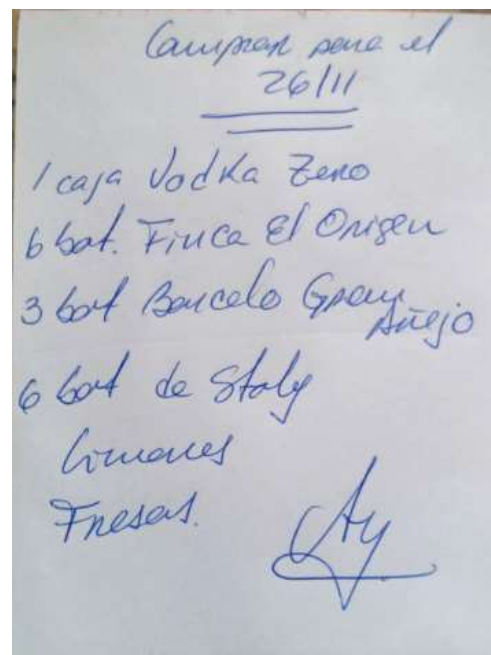 Comprar para el
26/11
1 caja Vodka Zero
6 bot. Finca El Origen
3 bot Barcelo Gran
Añejo
6 bot de Stoly
Limones
Fresas.